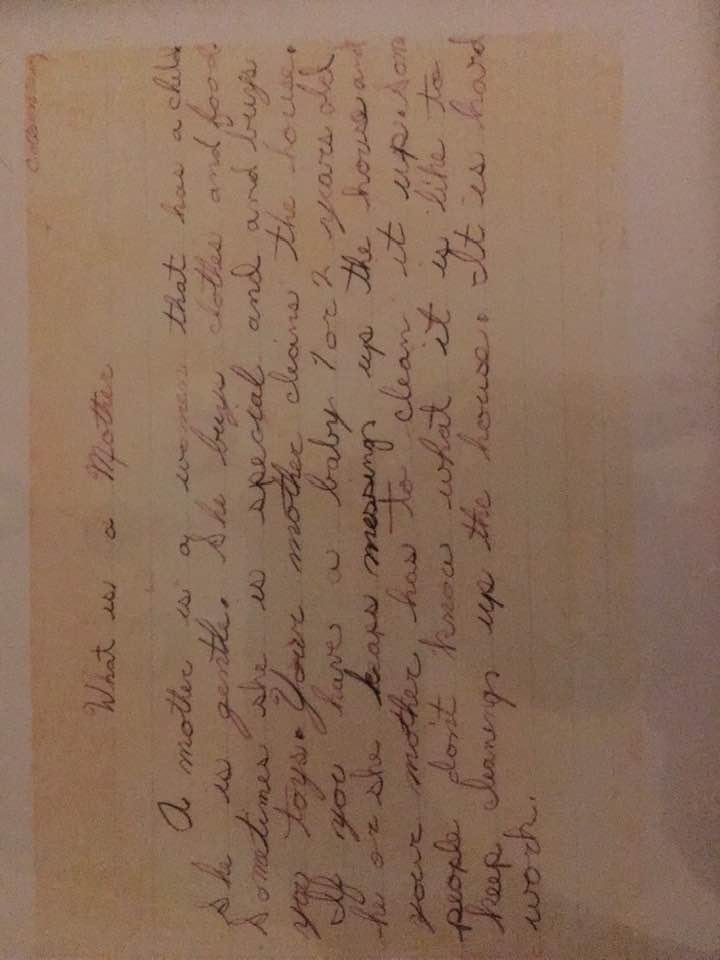 What is a Mother
A mother is a women that has a child
She is gentle. She buys clothes and food.
Sometimes she is special and and buys
you toys. Your mother cleans the house.
If you have a baby 1 or 2 years old
he or she keaps messings up the house and
your mother has to clean it up. Som
people don't know what it is like to
keep cleanings up the house. It is hard
work.